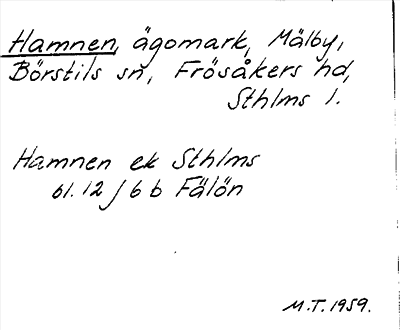 Hamnen, ägomark, Mälby,
Börstils sn, Frösåkers hd,
Sthlms l.
Hamnen ek Sthlms
61.12 / 6 b Fälön
M.T. 1959.